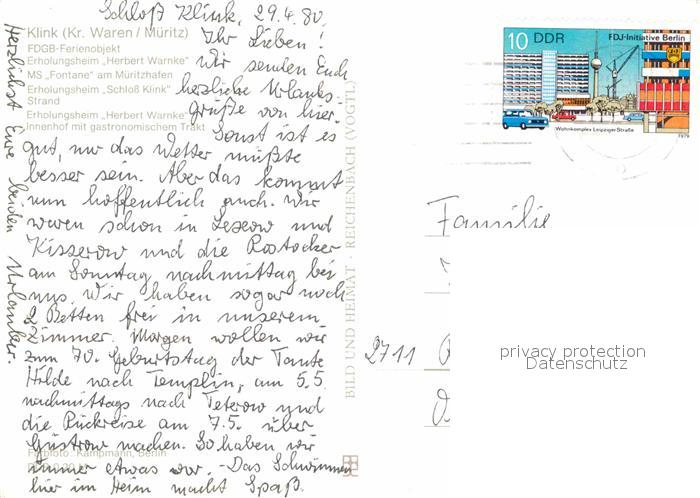 Schloß Klink, 29.4.80.
Ihr Lieben!
Wir senden Euch
herzliche Urlaubs-
grüße von hier.
Sonst ist es
gut, nur das Wetter müßte
besser sein. Aber das kommt
nun hoffentlich auch. Wir
waren schon in und
Kisserow und die Rostocker
am Sonntag nachmittag bei
uns. Wir haben sogar noch
2 Betten frei in unserem
Zimmer. Morgen wollen wir
zum 70. Geburtstag der Tante
Hilde nach Templin, am 5.5.
nachmittags nach Teterow und
die Rückreise am 7.5. über
Güstrow machen. So haben wir
immer etwas vor. - Das Schwimmen
hier im Heim macht Spaß.
Herzlichst Eure beiden Urlauber.
Klink (Kr. Waren / Müritz)
FDGB-Ferienobjekt
Erholungsheim „Herbert Warnke"
MS „Fontane" am Müritzhafen
Erholungsheim „Schloß Klink"
Strand
Erholungsheim „Herbert Warnke"
Innenhof mit gastronomischem Trakt
Farbfoto: Kampmann, Berlin
BILD UND HEIMAT · REICHENBACH (VOGTL)
10 DDR FDJ-Initiative Berlin
Wohnkomplex Leipziger Straße
1979
Familie
2711
privacy protection
Datenschutz